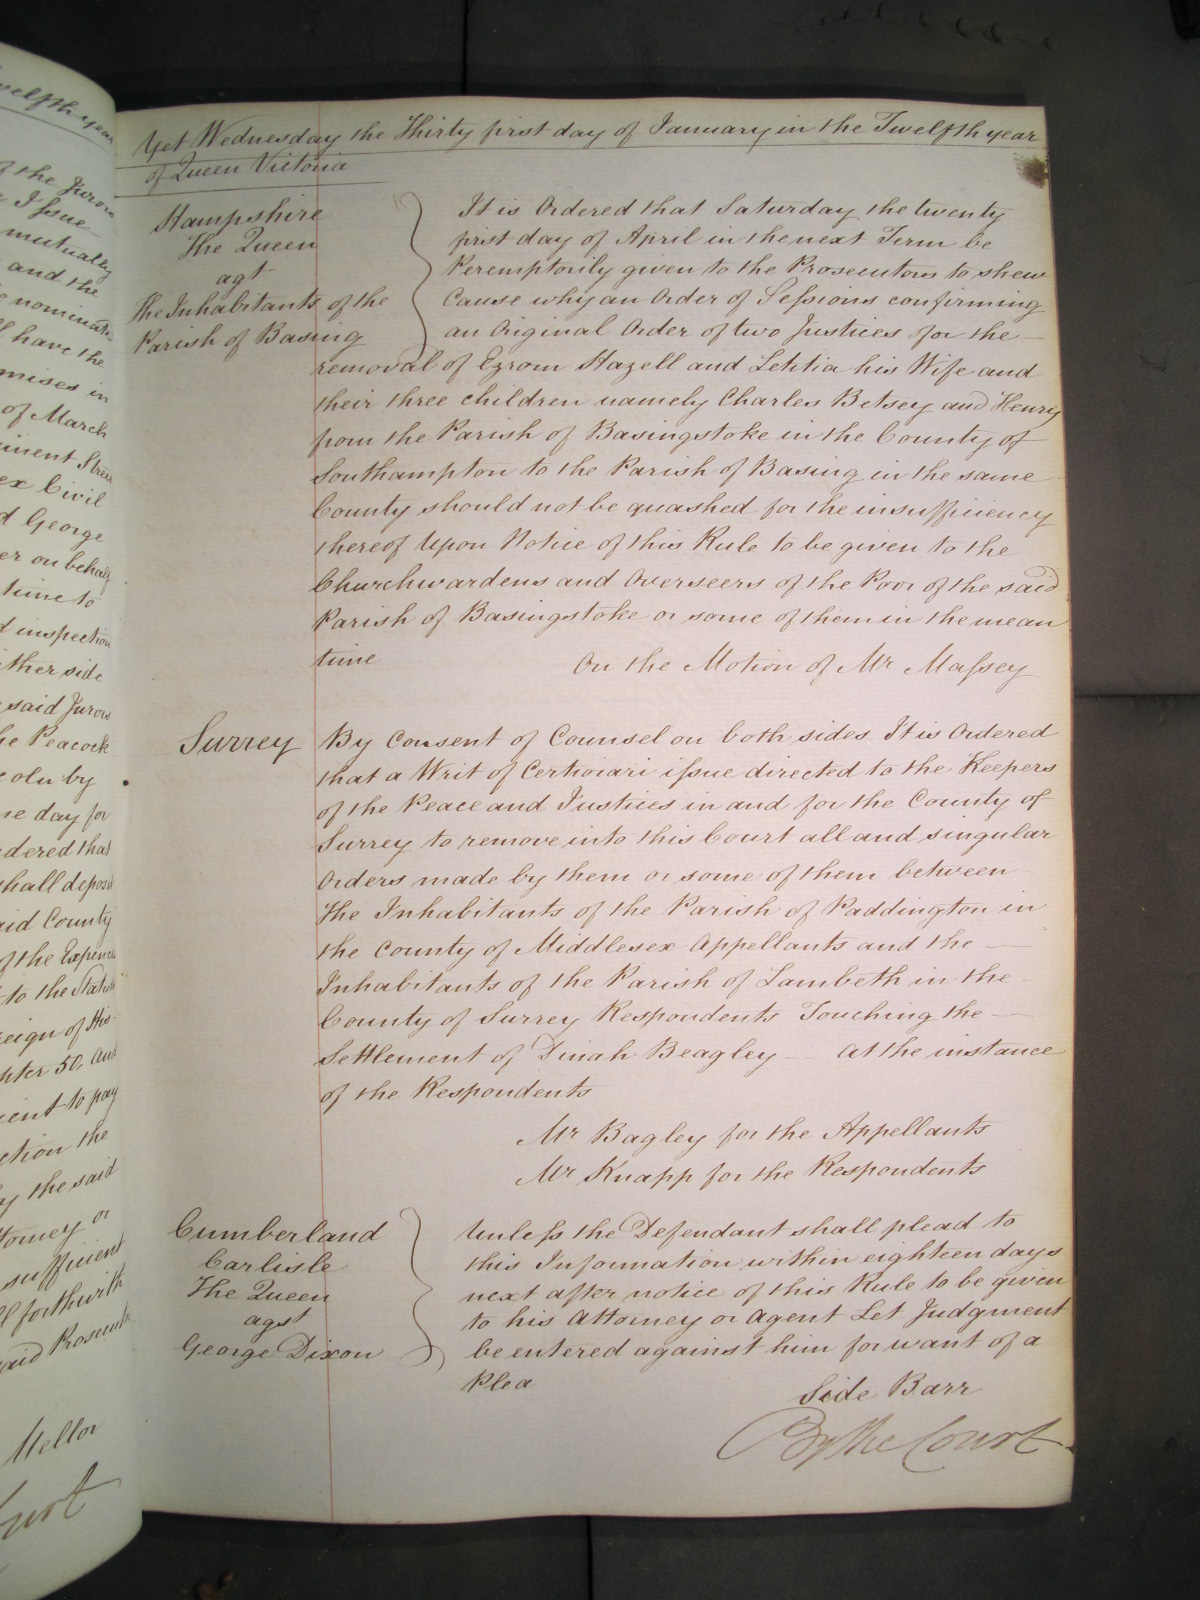 Yet Wednesday the Thirty first day of January in the Twelfth year
of Queen Victoria
Hampshire
The Queen
agt
The Inhabitants of the
Parish of Basing
It is Ordered that Saturday the twenty
first day of April in the next Term be
Peremptorily given to the Prosecutors to shew
Cause why an Order of Sessions confirming
an Original Order of two Justices for the
removal of Ezrom Hazell and Letitia his Wife and
their three children namely Charles Betsey and Henry
from the Parish of Basingstoke in the County of
Southampton to the Parish of Basing in the same
County should not be quashed for the insufficiency
thereof Upon Notice of this Rule to be given to the
Churchwardens and Overseers of the Poor of the said
Parish of Basingstoke or some of them in the mean
time
On the Motion of Mr Massey
Surrey
By Consent of Counsel on both sides It is Ordered
that a Writ of Certiorari issue directed to the Keepers
of the Peace and Justices in and for the County of
Surrey to remove into this Court all and singular
Orders made by them or some of them between
The Inhabitants of the Parish of Paddington in
the County of Middlesex Appellants and the
Inhabitants of the Parish of Lambeth in the
County of Surrey Respondents Touching the
Settlement of Dinah Beagley At the instance
of the Respondents
Mr Bagley for the Appellants
Mr Knapp for the Respondents
Cumberland
Carlisle
The Queen
agst
George Dixon
Unless the Defendant shall plead to
this Information within eighteen days
next after notice of this Rule to be given
to his Attorney or Agent Let Judgment
be entered against him for want of a
Plea
Side Barr
By the Court
twelfth year
of the Jurors
Issue
mutually
and the
nominated
have the
premises in
of March
Civil
George
on behalf
time to
inspection
either side
said Jurors
Peacock
by
day for
ordered that
shall deposit
said County
of the Expences
to the Statute
reign of His
chapter 50, and
to pay
the
by the said
Attorney or
sufficient
forthwith
said
Mellor
Court